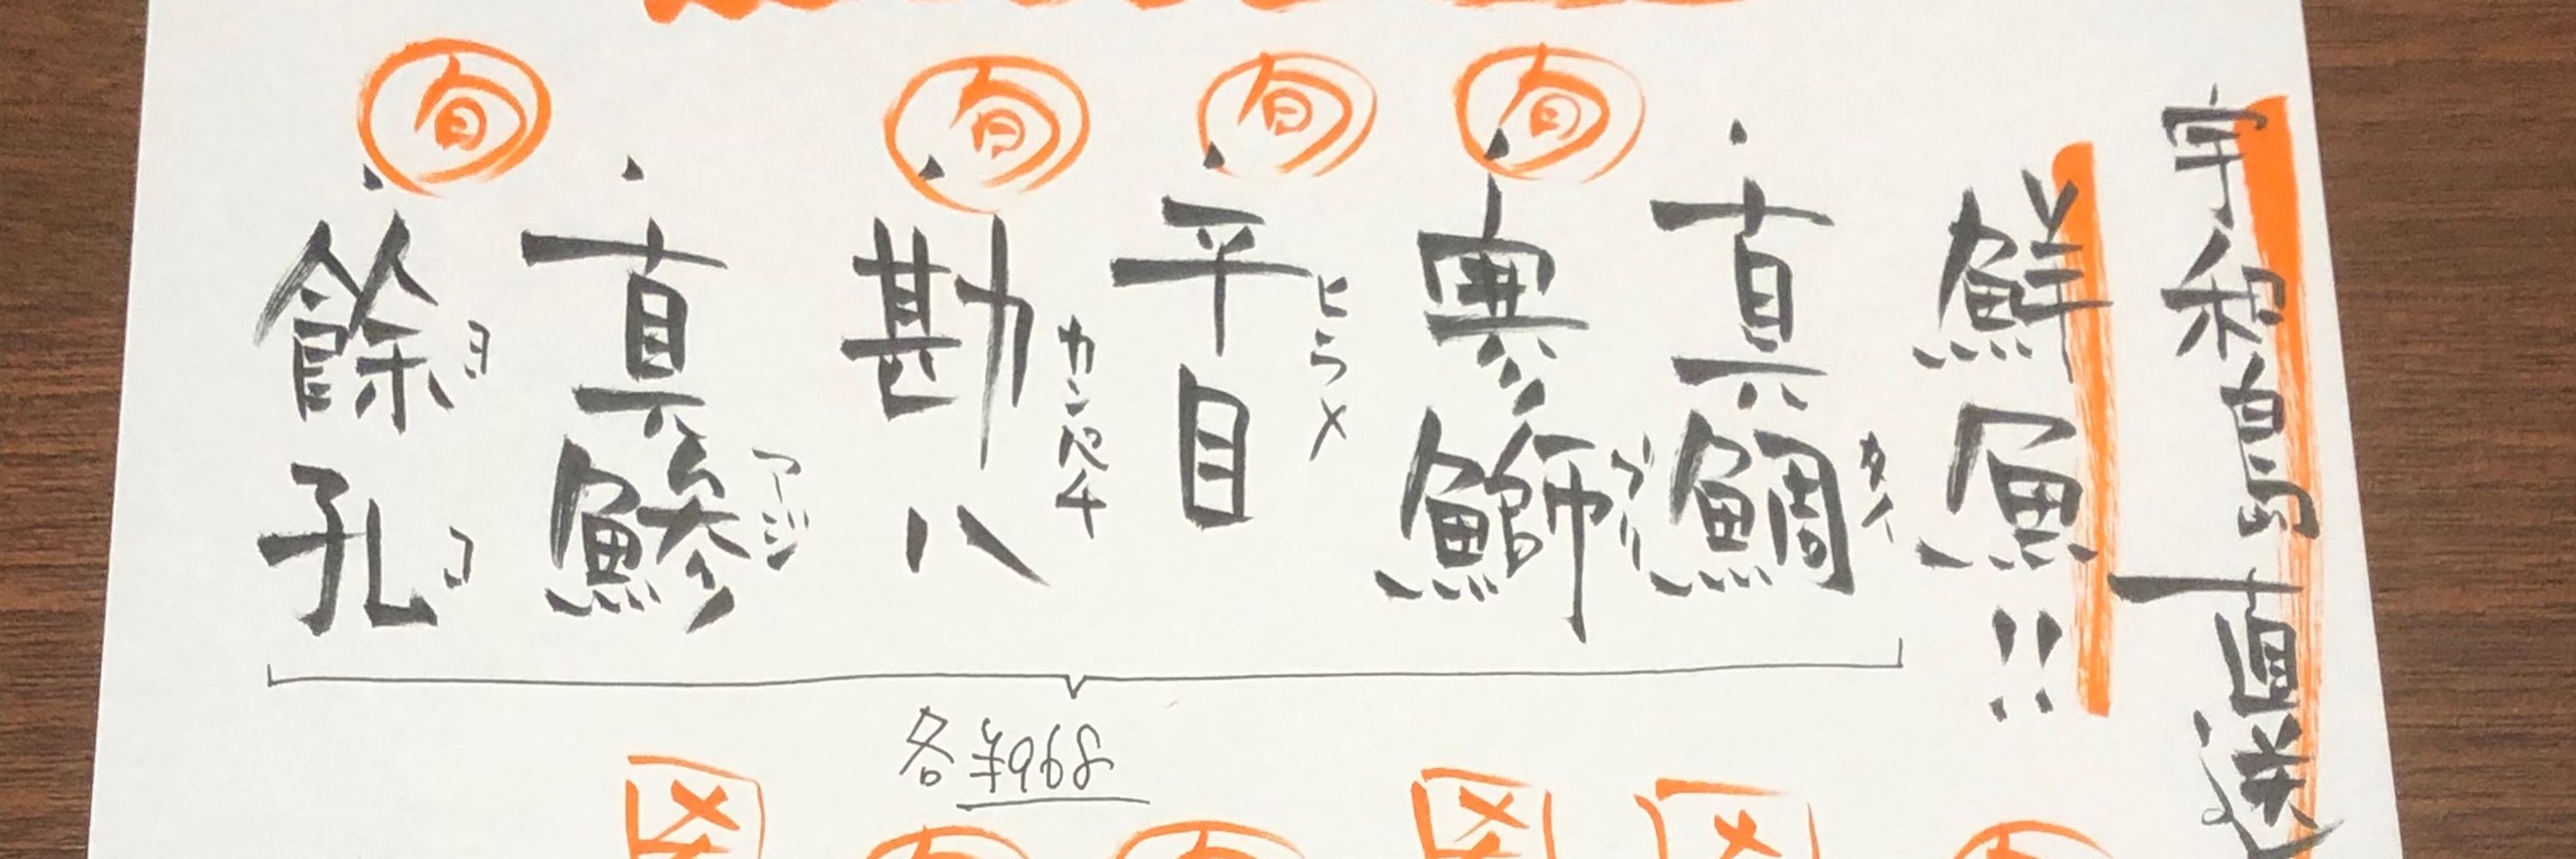 宇和島直送
鮮魚!!
・真鯛 タイ
旬
・寒鰤 ブリ
旬
・平目 ヒラメ
旬
・勘八 カンパチ
・真鯵 アジ
旬
・餘孔 ヨコ
各¥968